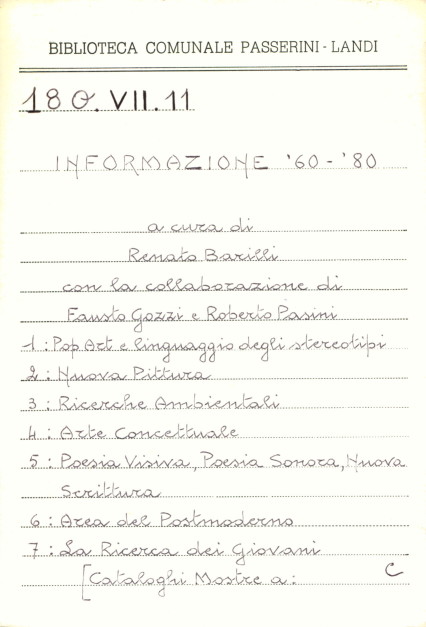 BIBLIOTECA COMUNALE PASSERINI - LANDI
180. VII. 11
INFORMAZIONE '60 - '80
a cura di
Renato Barilli
con la collaborazione di
Fausto Gozzi e Roberto Pasini
1 : Pop Art e linguaggio degli stereotipi
2 : Nuova Pittura
3 : Ricerche Ambientali
4 : Arte Concettuale
5 : Poesia Visiva, Poesia Sonora, Nuova
Scrittura
6 : Area del Postmoderno
7 : La Ricerca dei Giovani
[Cataloghi Mostre a : C